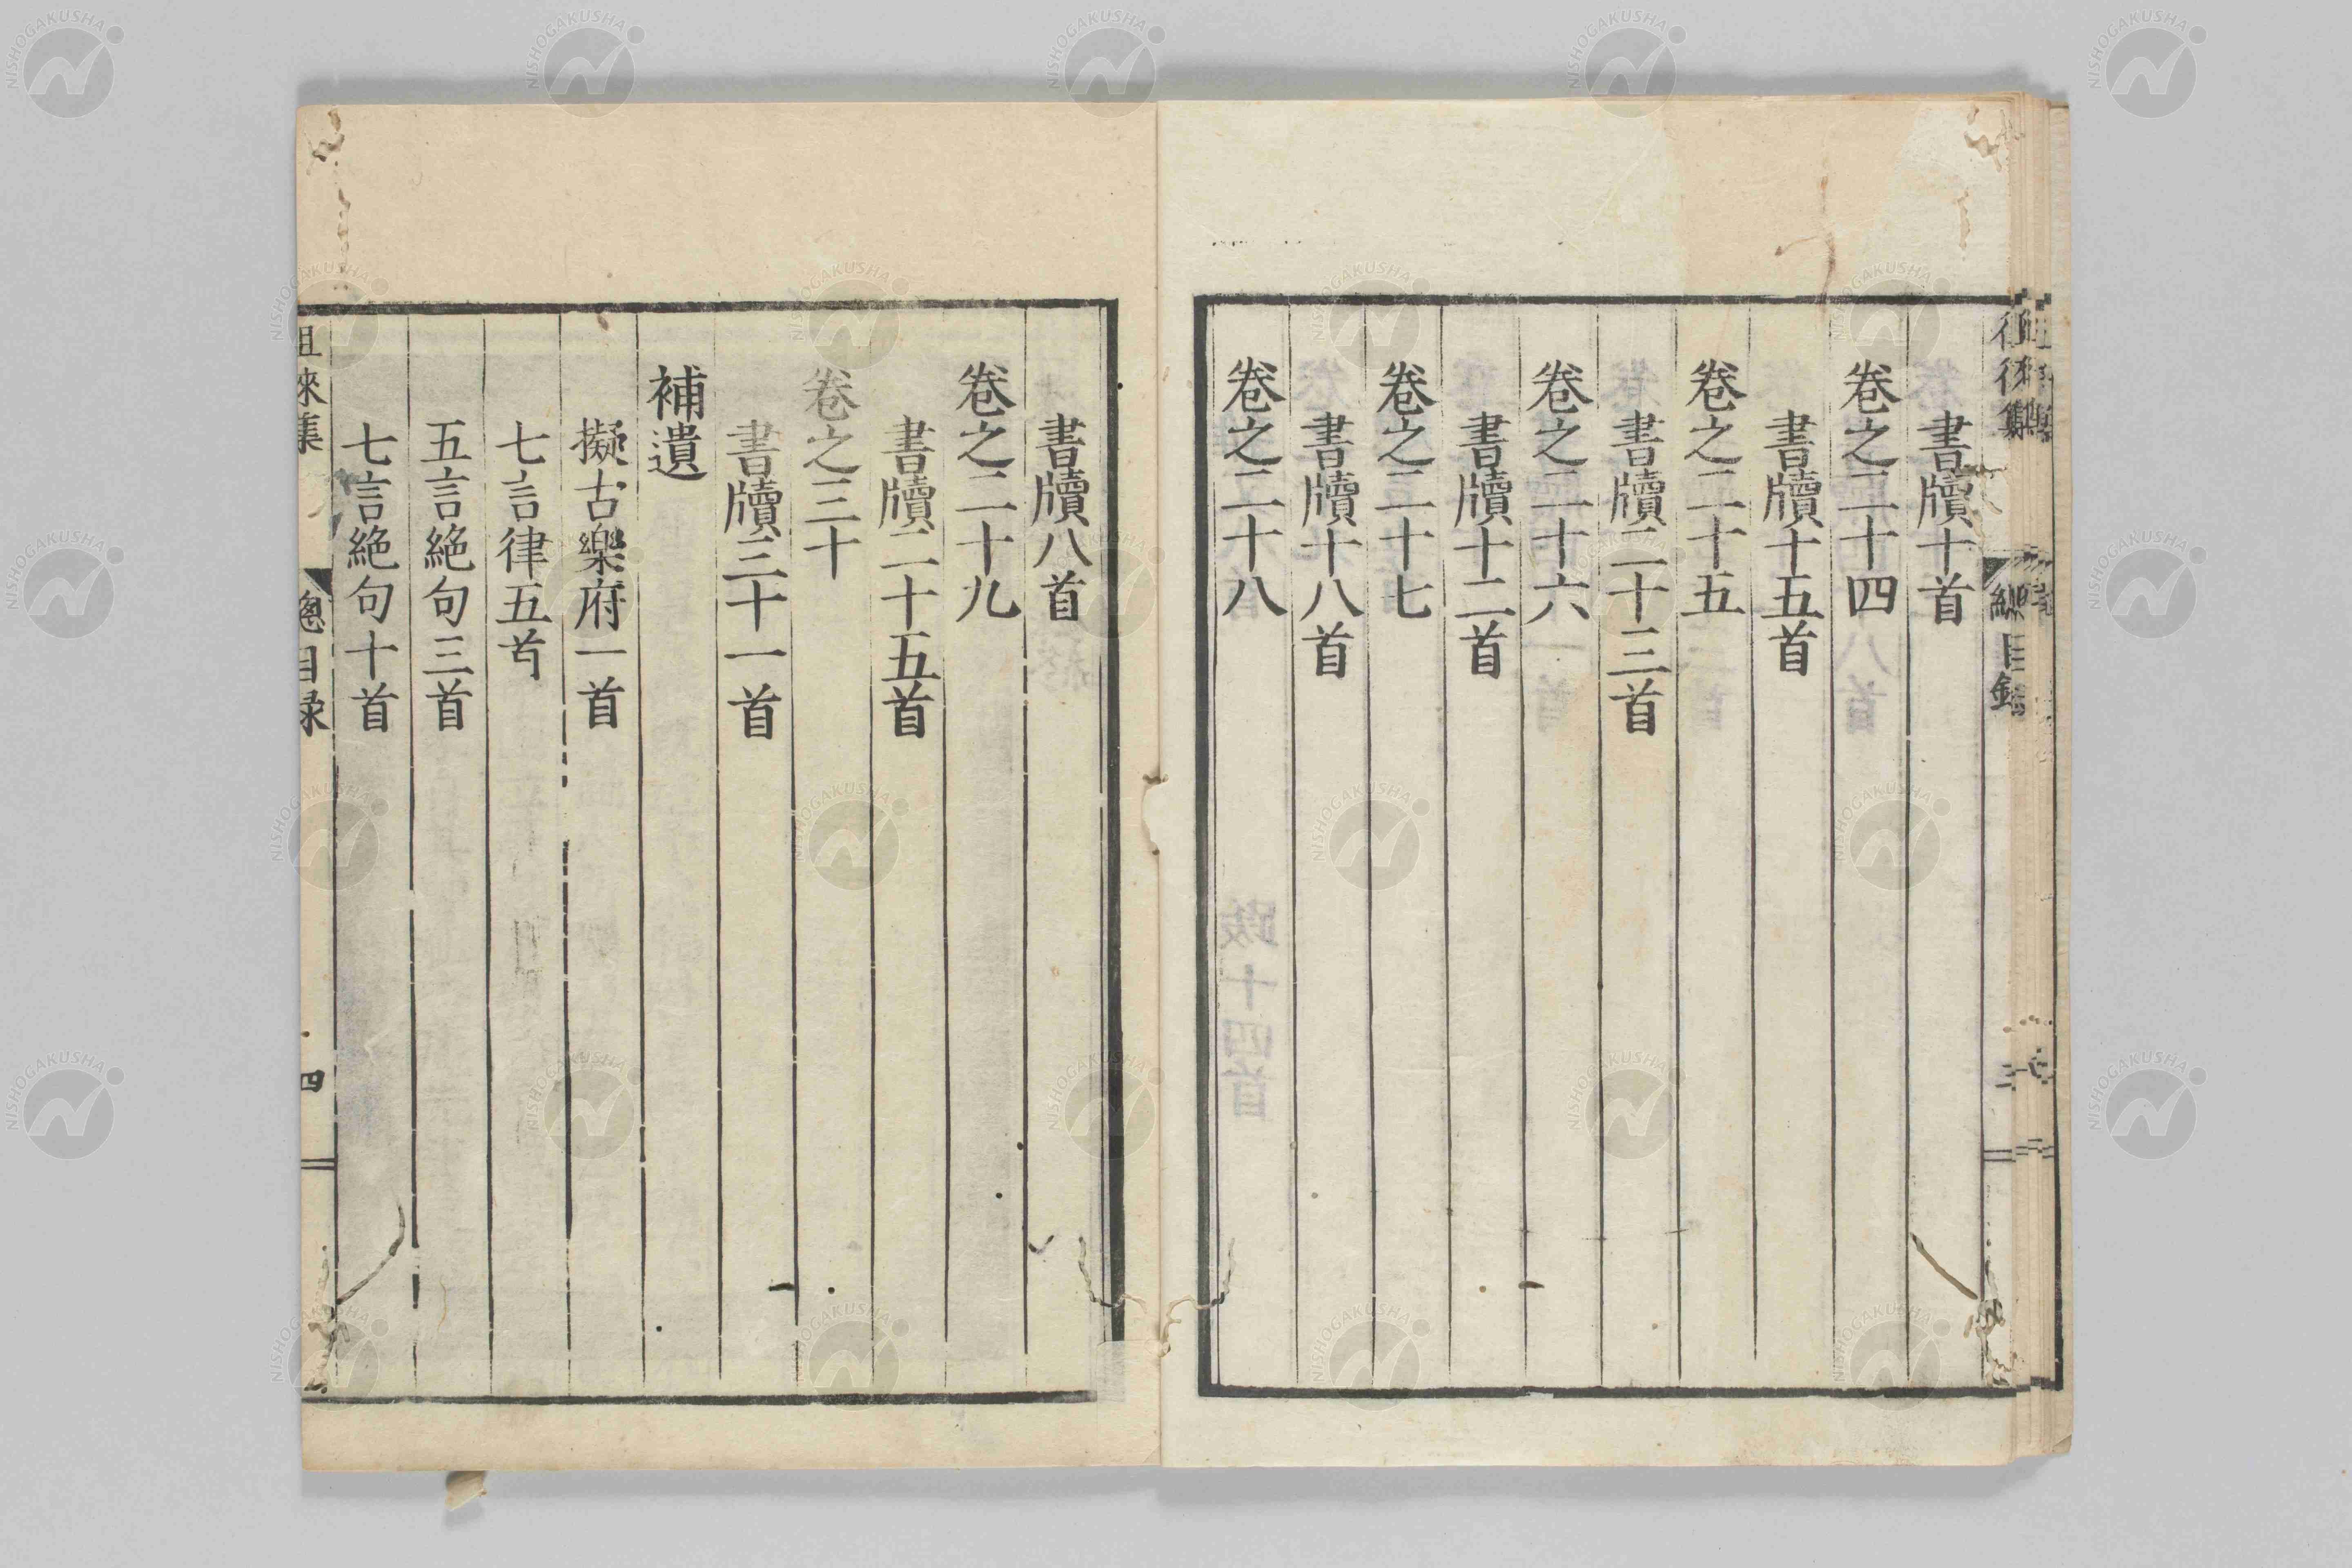 書牘十首
卷之二十四
書牘十五首
卷之二十五
書牘二十三首
卷之二十六
書牘十二首
卷之二十七
書牘十八首
卷之二十八
書牘八首
卷之二十九
書牘二十五首
卷之三十
書牘三十一首
補遺
擬古樂府一首
七言律五首
五言絕句三首
七言絕句十首
徂徠集
總目錄
四
NISHOGAKUSHA